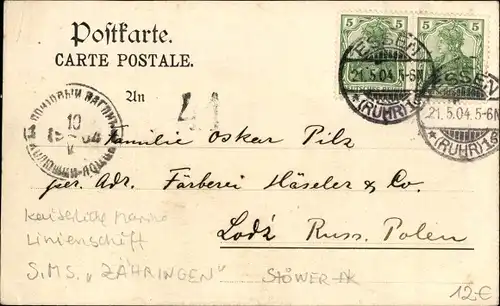 Postkarte.
CARTE POSTALE.
5 5
5
ESSEN
21.5.04.5-6N
*(RUHR)1
ESSEN
21.5.04.5-6N
*(RUHR)1
An
10
V
Familie Oskar Pilz
per. Adr. Färberei Häseler & Co.
Lodź Russ. Polen
Kaiserliche Marine
Linienschiff
S.M.S. „ZÄHRINGEN"
STÖWER-AK
12.-€